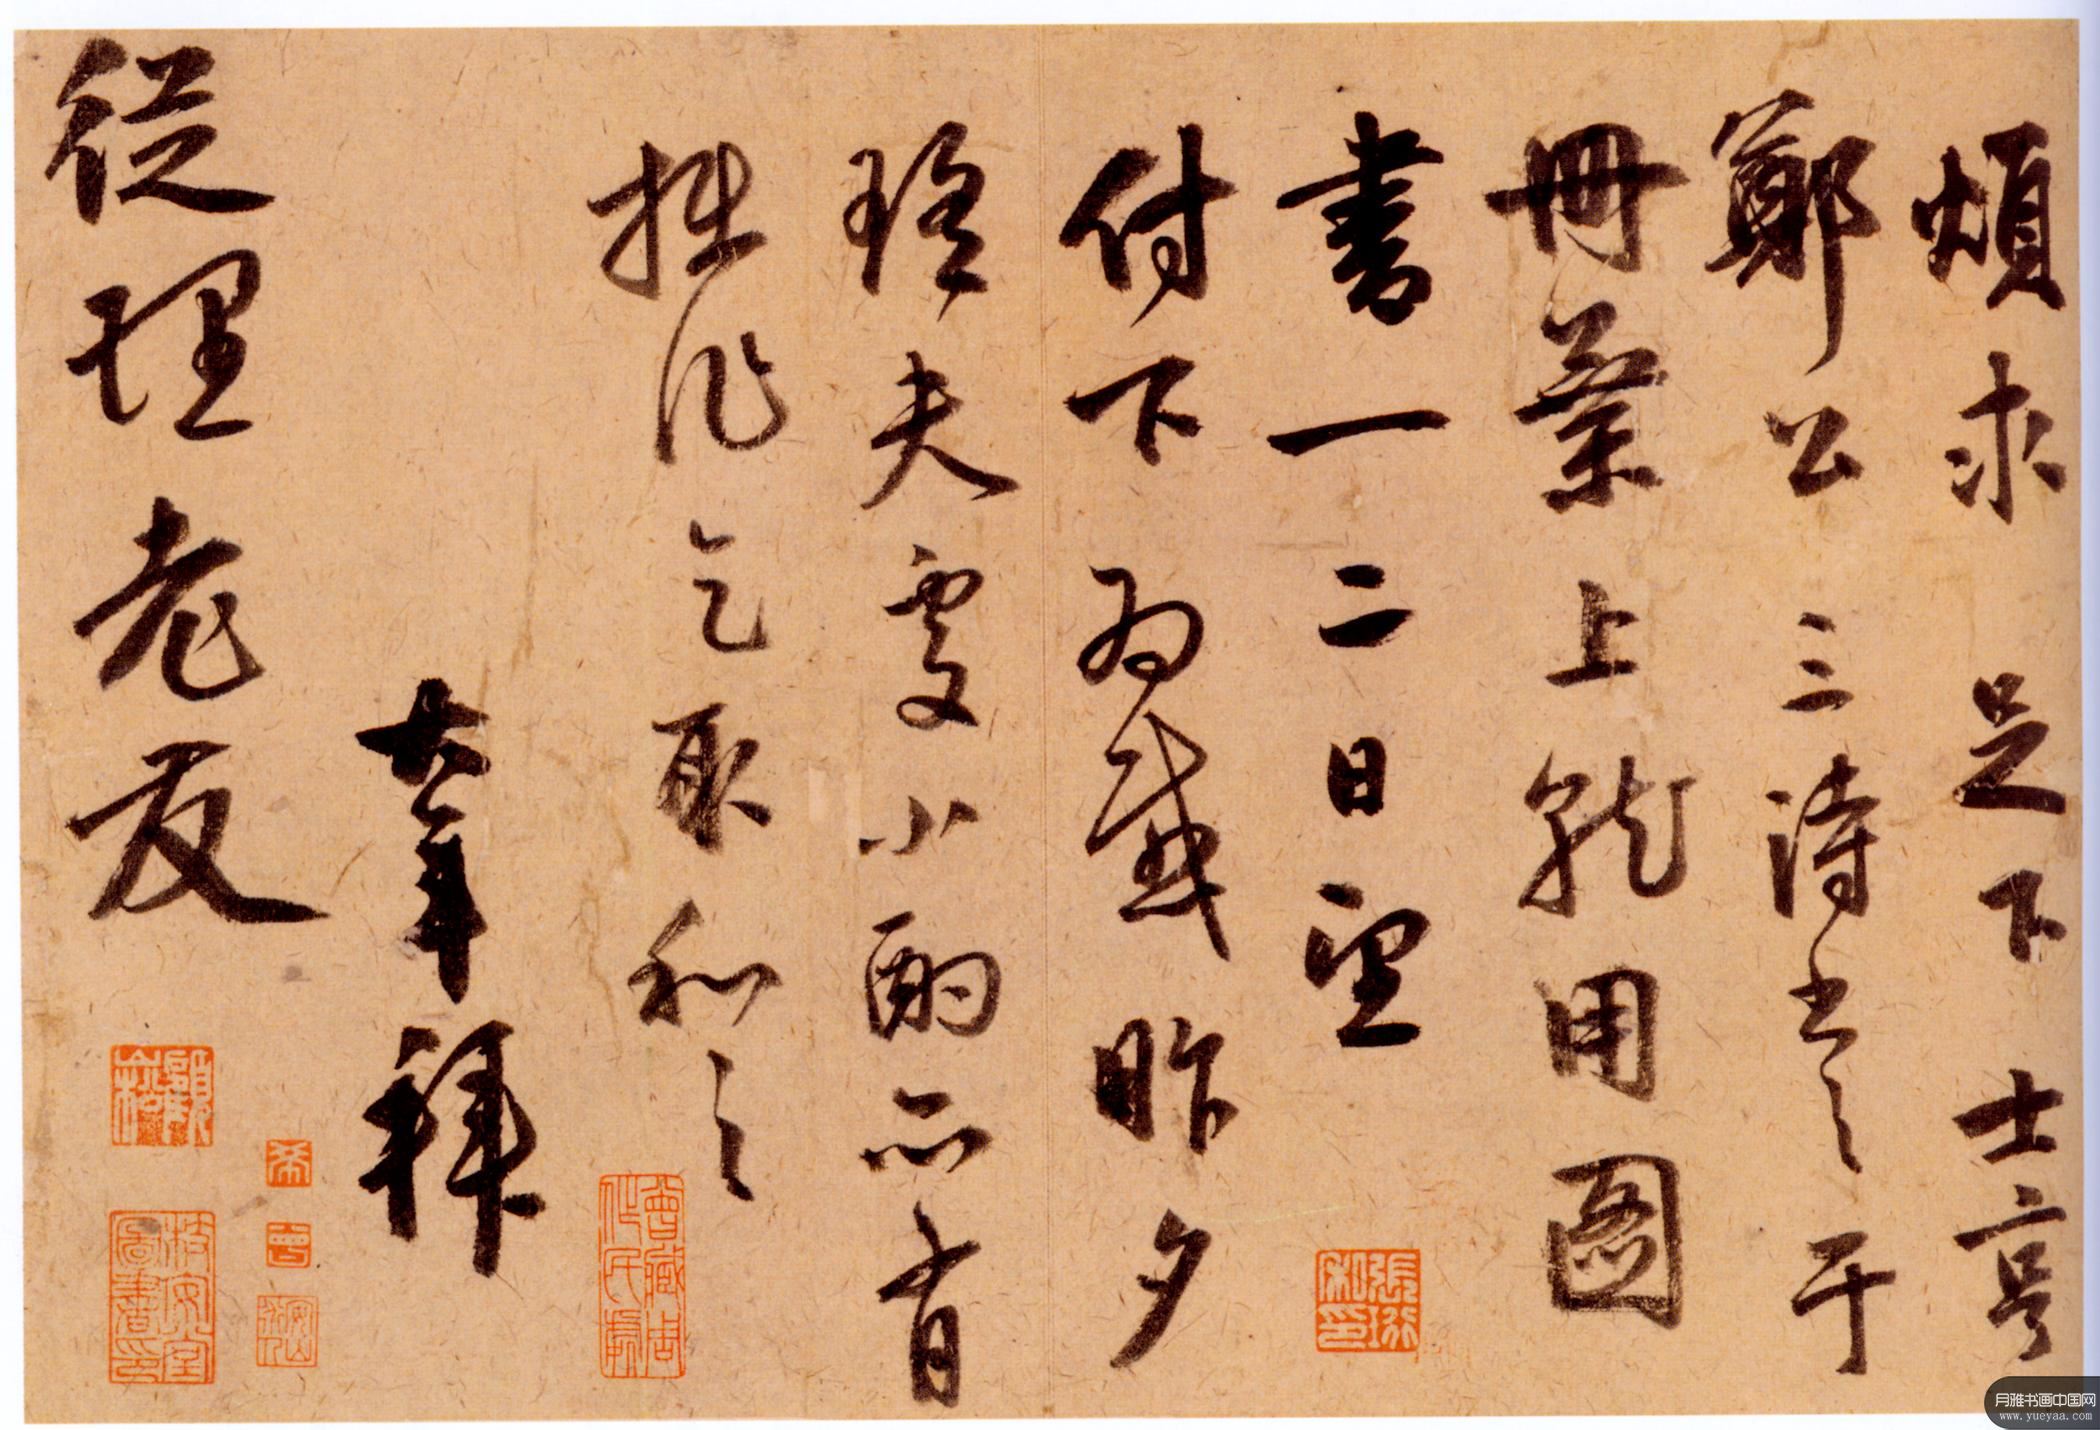 煩求足下士亨
鄭公三詩書之于
冊葉上就用圖
書一二日望
付下為感昨夕
珍夫處小酌亦有
拙作乞取和之
大年拜
從理老友
月雅书画中国网
www.yueyaa.com